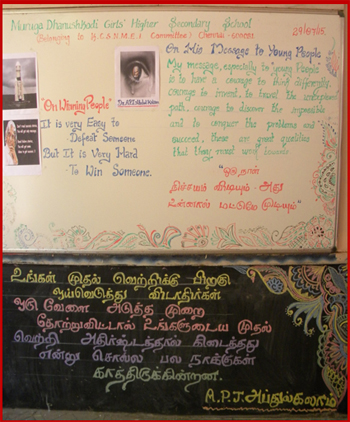 Muruga Dhanushkodi Girls' Higher Secondary School
(Belonging to B.C.S.N.M.E.I Committee) Chennai -
29/07/15
On His Message to Young People
My message, especially to young people
is to have a courage to think differently,
courage to invent, to travel the unexplored
path, courage to discover the impossible
and to conquer the problems and
succeed, these are great qualities
that they must work towards
"On Winning People"
It is very Easy to
Defeat Someone
But It is Very Hard
To Win Someone.
Dr. A.P.J. Abdul Kalam
"ஒரு நாள்
நிச்சயம் விடியும் - அது
உன்னால் மட்டுமே முடியும்"
உங்கள் முதல் வெற்றிக்கு பிறகு
ஓய்வெடுத்து விடாதீர்கள்
ஒரு வேளை அடுத்த முறை
தோற்றுவிட்டால் உங்களுடைய முதல்
வெற்றி அதிர்ஷ்டத்தால் கிடைத்தது
என்று சொல்ல பல நாக்குகள்
காத்திருக்கின்றன.
A.P.J. அப்துல்கலாம்